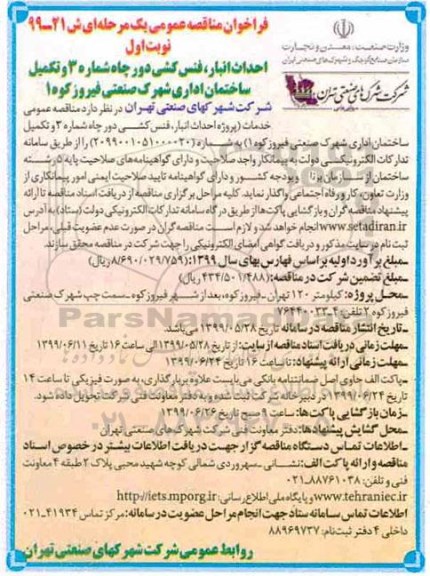 فراخوان مناقصه عمومی یک مرحله‌ای ش ۲۱-۹۹
نوبت اول
وزارت صنعت، معدن و تجارت
سازمان صنایع کوچک و شهرکهای صنعتی ایران
شرکت شهرکهای صنعتی تهران
احداث انبار، فنس کشی دور چاه شماره ۳ و تکمیل
ساختمان اداری شهرک صنعتی فیروزکوه ۱
شرکت شهرکهای صنعتی تهران در نظر دارد مناقصه عمومی
خدمات (پروژه احداث انبار، فنس کشی دور چاه شماره ۳ و تکمیل
ساختمان اداری شهرک صنعتی فیروزکوه ۱) به شماره (۲۰۹۹۰۰۱۰۵۱۰۰۰۰۲۰) را از طریق سامانه
تدارکات الکترونیکی دولت به پیمانکار واجد صلاحیت و دارای گواهینامه‌های صلاحیت پایه ۵ رشته
ساختمان از سازمان برنامه و بودجه کشور و دارای گواهینامه تایید صلاحیت ایمنی امور پیمانکاری از
وزارت تعاون، کار و رفاه اجتماعی واگذار نماید. کلیه مراحل برگزاری مناقصه از دریافت اسناد مناقصه تا ارائه
پیشنهاد مناقصه گران و بازگشایی پاکت‌ها از طریق درگاه سامانه تدارکات الکترونیکی دولت (ستاد) به آدرس
www.setadiran.ir انجام خواهد شد و لازم است مناقصه گران در صورت عدم عضویت قبلی، مراحل
ثبت نام در سایت مذکور و دریافت گواهی امضای الکترونیکی را جهت شرکت در مناقصه محقق سازند.
-مبلغ برآورد اولیه بر اساس فهارس بهای سال ۱۳۹۹: (۸/۶۹۰/۰۲۹/۷۵۹ ریال)
-مبلغ تضمین شرکت در مناقصه: (۴۳۴/۵۰۱/۴۸۸ ریال)
-محل پروژه: کیلومتر ۱۲۰ تهران - فیروزکوه، بعد از شهر فیروزکوه، سمت چپ شهرک صنعتی
فیروزکوه ۲ تلفن:
-تاریخ انتشار مناقصه در سامانه تاریخ ۱۳۹۹/۰۵/۲۸ می‌باشد.
-مهلت زمانی دریافت اسناد مناقصه از سایت: از تاریخ ۱۳۹۹/۰۵/۲۸ الی ساعت ۱۶ تاریخ ۱۳۹۹/۰۶/۱۱
-مهلت زمانی ارائه پیشنهاد: تا ساعت ۱۶ تاریخ ۱۳۹۹/۰۶/۲۴
-پاکت الف حاوی اصل ضمانتنامه بانکی می‌بایست علاوه بر بارگذاری، به صورت فیزیکی تا ساعت ۱۴
تاریخ ۱۳۹۹/۰۶/۲۴ در دبیرخانه شرکت ثبت شده و به دفتر معاونت فنی شرکت تحویل داده شود.
-زمان بازگشایی پاکت‌ها: ساعت ۹ صبح تاریخ ۱۳۹۹/۰۶/۲۶
-محل گشایش پیشنهادها: دفتر معاونت فنی شرکت شهرکهای صنعتی تهران
-اطلاعات تماس دستگاه مناقصه گزار جهت دریافت اطلاعات بیشتر در خصوص اسناد
مناقصه و ارائه پاکت الف: نشانی - سهروردی شمالی کوچه شهید محبی پلاک ۲ طبقه ۴ معاونت
فنی و تلفن: ۸۸۷۶۱۰۳۸-۰۲۱
www.tehraniec.ir و پایگاه ملی اطلاع رسانی: http://iets.mporg.ir
اطلاعات تماس سامانه ستاد جهت انجام مراحل عضویت در سامانه: مرکز تماس ۴۱۹۳۴-۰۲۱
داخلی ۴ دفتر ثبت نام: ۸۸۹۶۹۷۳۷
روابط عمومی شرکت شهرکهای صنعتی تهران